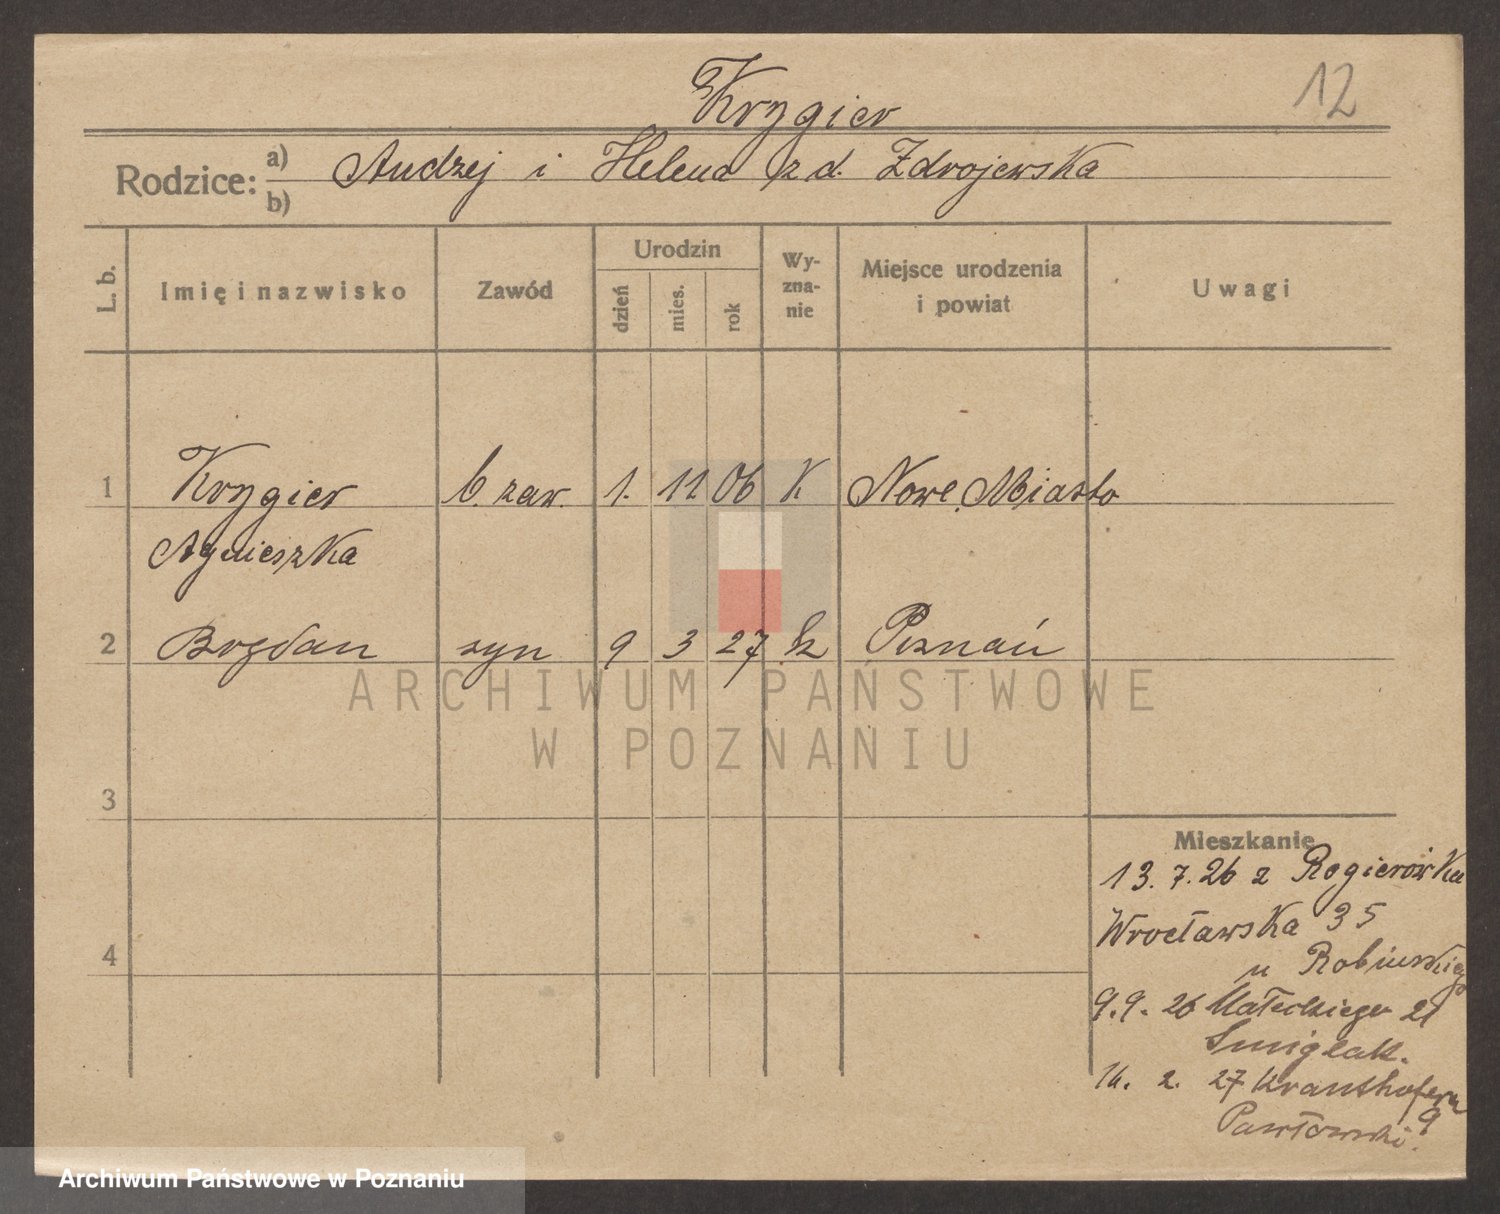 12
Krygier
Rodzice: a) Andrzej i Helena z d. Zdrojewska
b)
L. b. Imię i nazwisko Zawód Urodzin dzień mies. rok Wy-zna-nie Miejsce urodzenia i powiat Uwagi
1 Krygier b. zaw. 1. 11 06 K Nowe Miasto
Agnieszka
2 Bogdan syn 9 3 27 k Poznań
ARCHIWUM PAŃSTWOWE
W POZNANIU
3
Mieszkanie
13. 7. 26 z Rogierówka
Wrocławska 35
4
u Robińskiego
9. 9. 26 Małeckiego 21
Śmiglak.
2. 27 Kranthofera 9
Pawłowski.
Archiwum Państwowe w Poznaniu